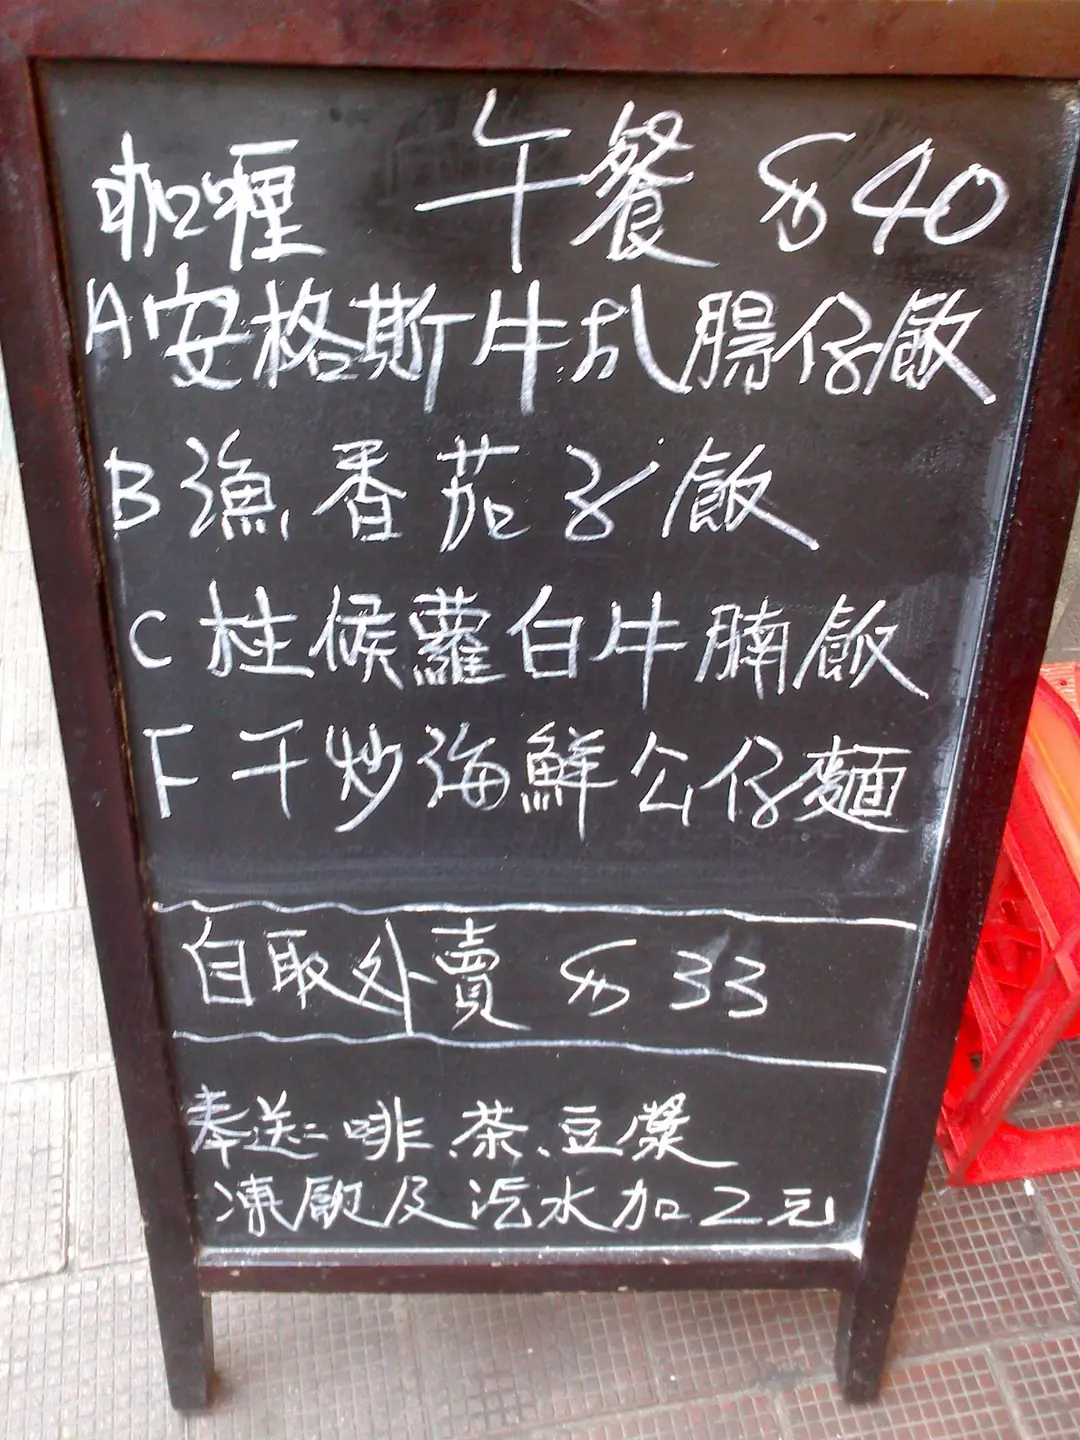 咖喱 午餐 $40
A 安格斯牛扒腸仔飯
B 漁香茄子飯
C 柱候蘿白牛腩飯
F 干炒海鮮公仔麵
自取外賣 $33
奉送:啡、茶、豆漿
凍飲及汽水加2元